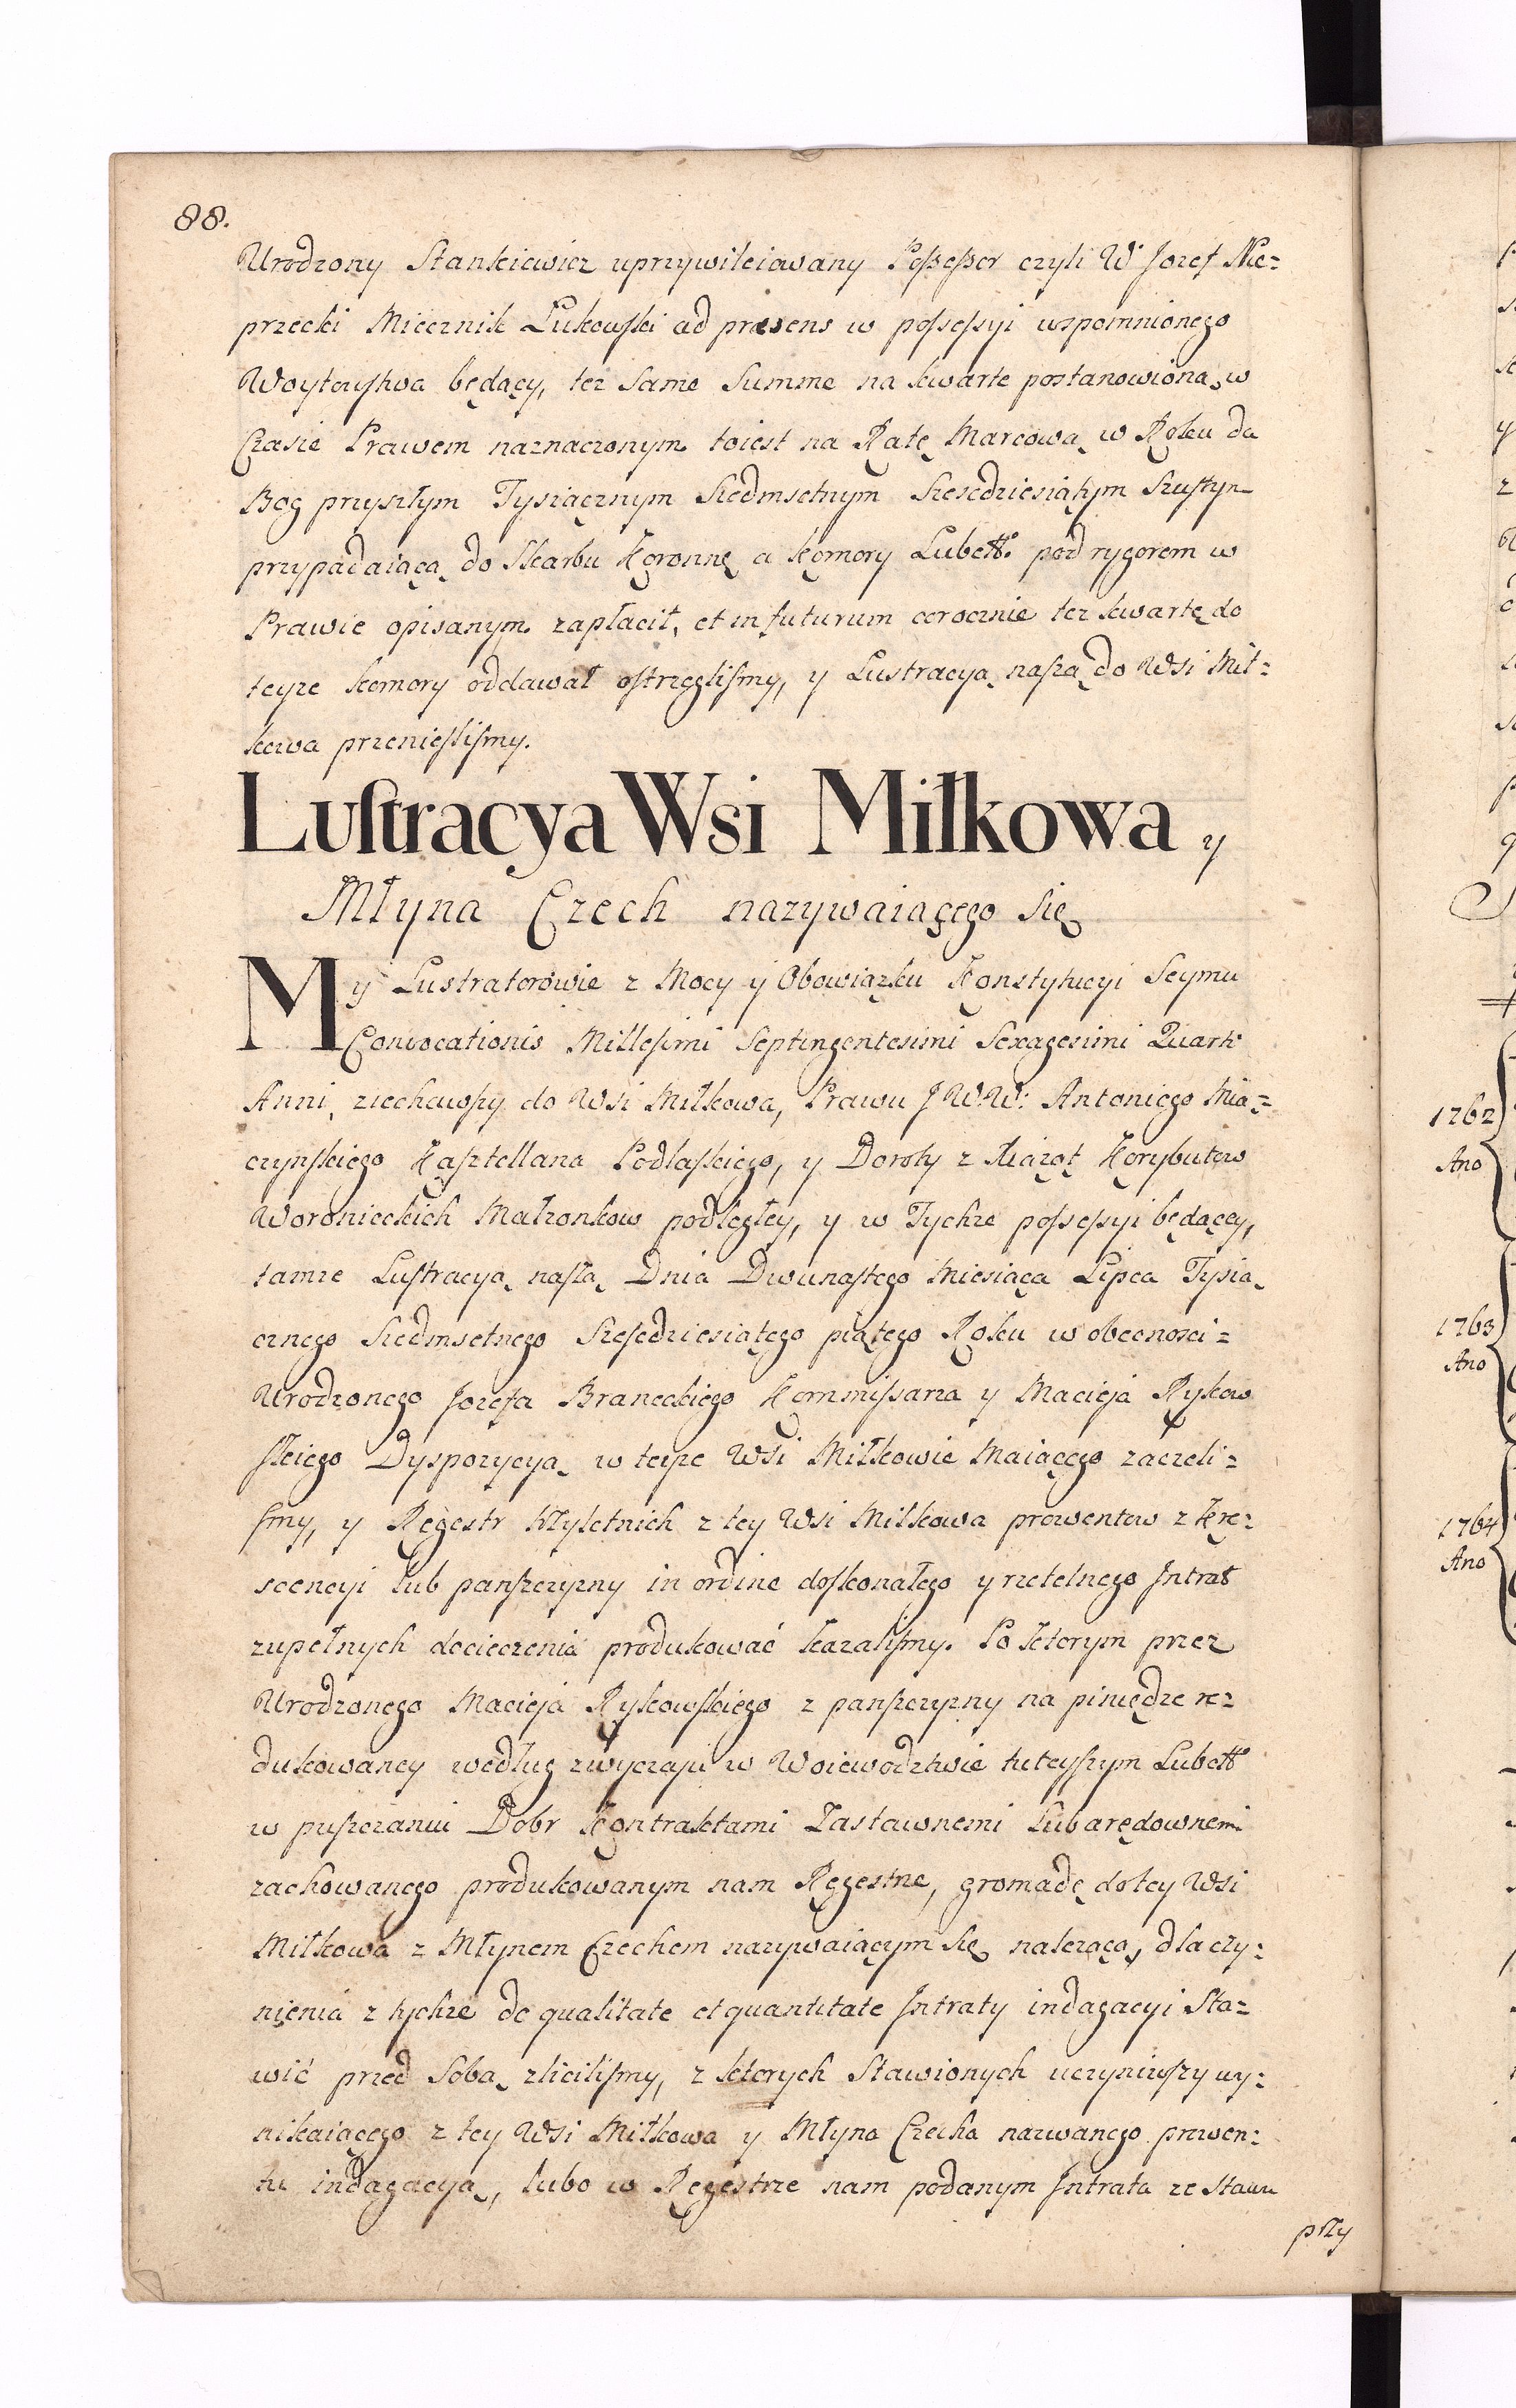 88.
Urodzony Stankiewicz uprzywileiowany Possessor czyli W Jozef Nie=
przecki Miecznik Łukowski ad præsens w possessyi wzpomnionego
Woytowstwa będący, tez same Summe na kwarte postanowioną w
Czasie Prawem naznaczonym toiest na Ratę Marcową w Roku da
Bog przyszłym Tysiącznym Siedmsetnym Szesdziesiątym Szustym
przypadaiącą do Skarbu Koronnę a Komory Lubelt. pod rygorem w
Prawie opisanym zapłacił, et in futurum corocznie tez kwartę do
teyze komory oddawał ostrzegliśmy, y Lustracyą naszą do Wsi Mił=
kowa przenieśliśmy.
Lustracya Wsi Miłkowa y
Młyna Czech nazywaiącego się
My Lustratorowie z Mocy y Obowiązku Konstytucyi Seymu
Convocationis Millesimi Septingentesimi Sexagesimi Quarti
Anni, ziechawszy do Wsi Miłkowa, Prawu J W.W: Antoniego Mią=
czynskiego Kasztellana Podlaskiego, y Doroty z Xiąząt Korybutow
Woronieckich Małzonkow podległey, y w Tychze possessyi będącey,
tamze Lustracyą naszą Dnia Dwunastego Miesiąca Lipca Tysią
cznego Siedmsetnego Szesdziesiątego piątego Roku w obecnosci=
Urodzonego Jozefa Braneckiego Kommissarza y Macieja Rykow
skiego Dyspozycyą w teyze Wsi Miłkowie Maiącego zaczeli=
smy, y Regestr Wszyletnich z tey Wsi Miłkowa prowentow z Kre=
scencyi lub panszczyzny in ordine doskonałego y rzetelnego Intrat
zupełnych docieczenia produkować kazaliśmy. Po ktorym przez
Urodzonego Macieja Rykowskiego z panszczyzny na piniędze re=
dukowaney według zwyczaju w Woiewodztwie tuteyszym Lubelt
w puszczaniu Dobr Kontraktami Zastawnemi Lub arędownemi
zachowanego produkowanym nam Regestrze, gromadę do tey Wsi
Miłkowa z Młynem Czechem nazywaiącym się nalezącą, dla czy=
nienia z tychze de qualitate et quantitate Intraty indagacyi Sta=
wić przed Sobą zliciliśmy, z ktorych Stawionych uczyniwszy wy=
nikaiącego z tey Wsi Miłkowa y Młyna Czecha nazwanego prowen=
tu indagacyą, lubo w Regestrze nam podanym Intrata ze Stawu
przy
1762
Ano
1763
Ano
1764
Ano